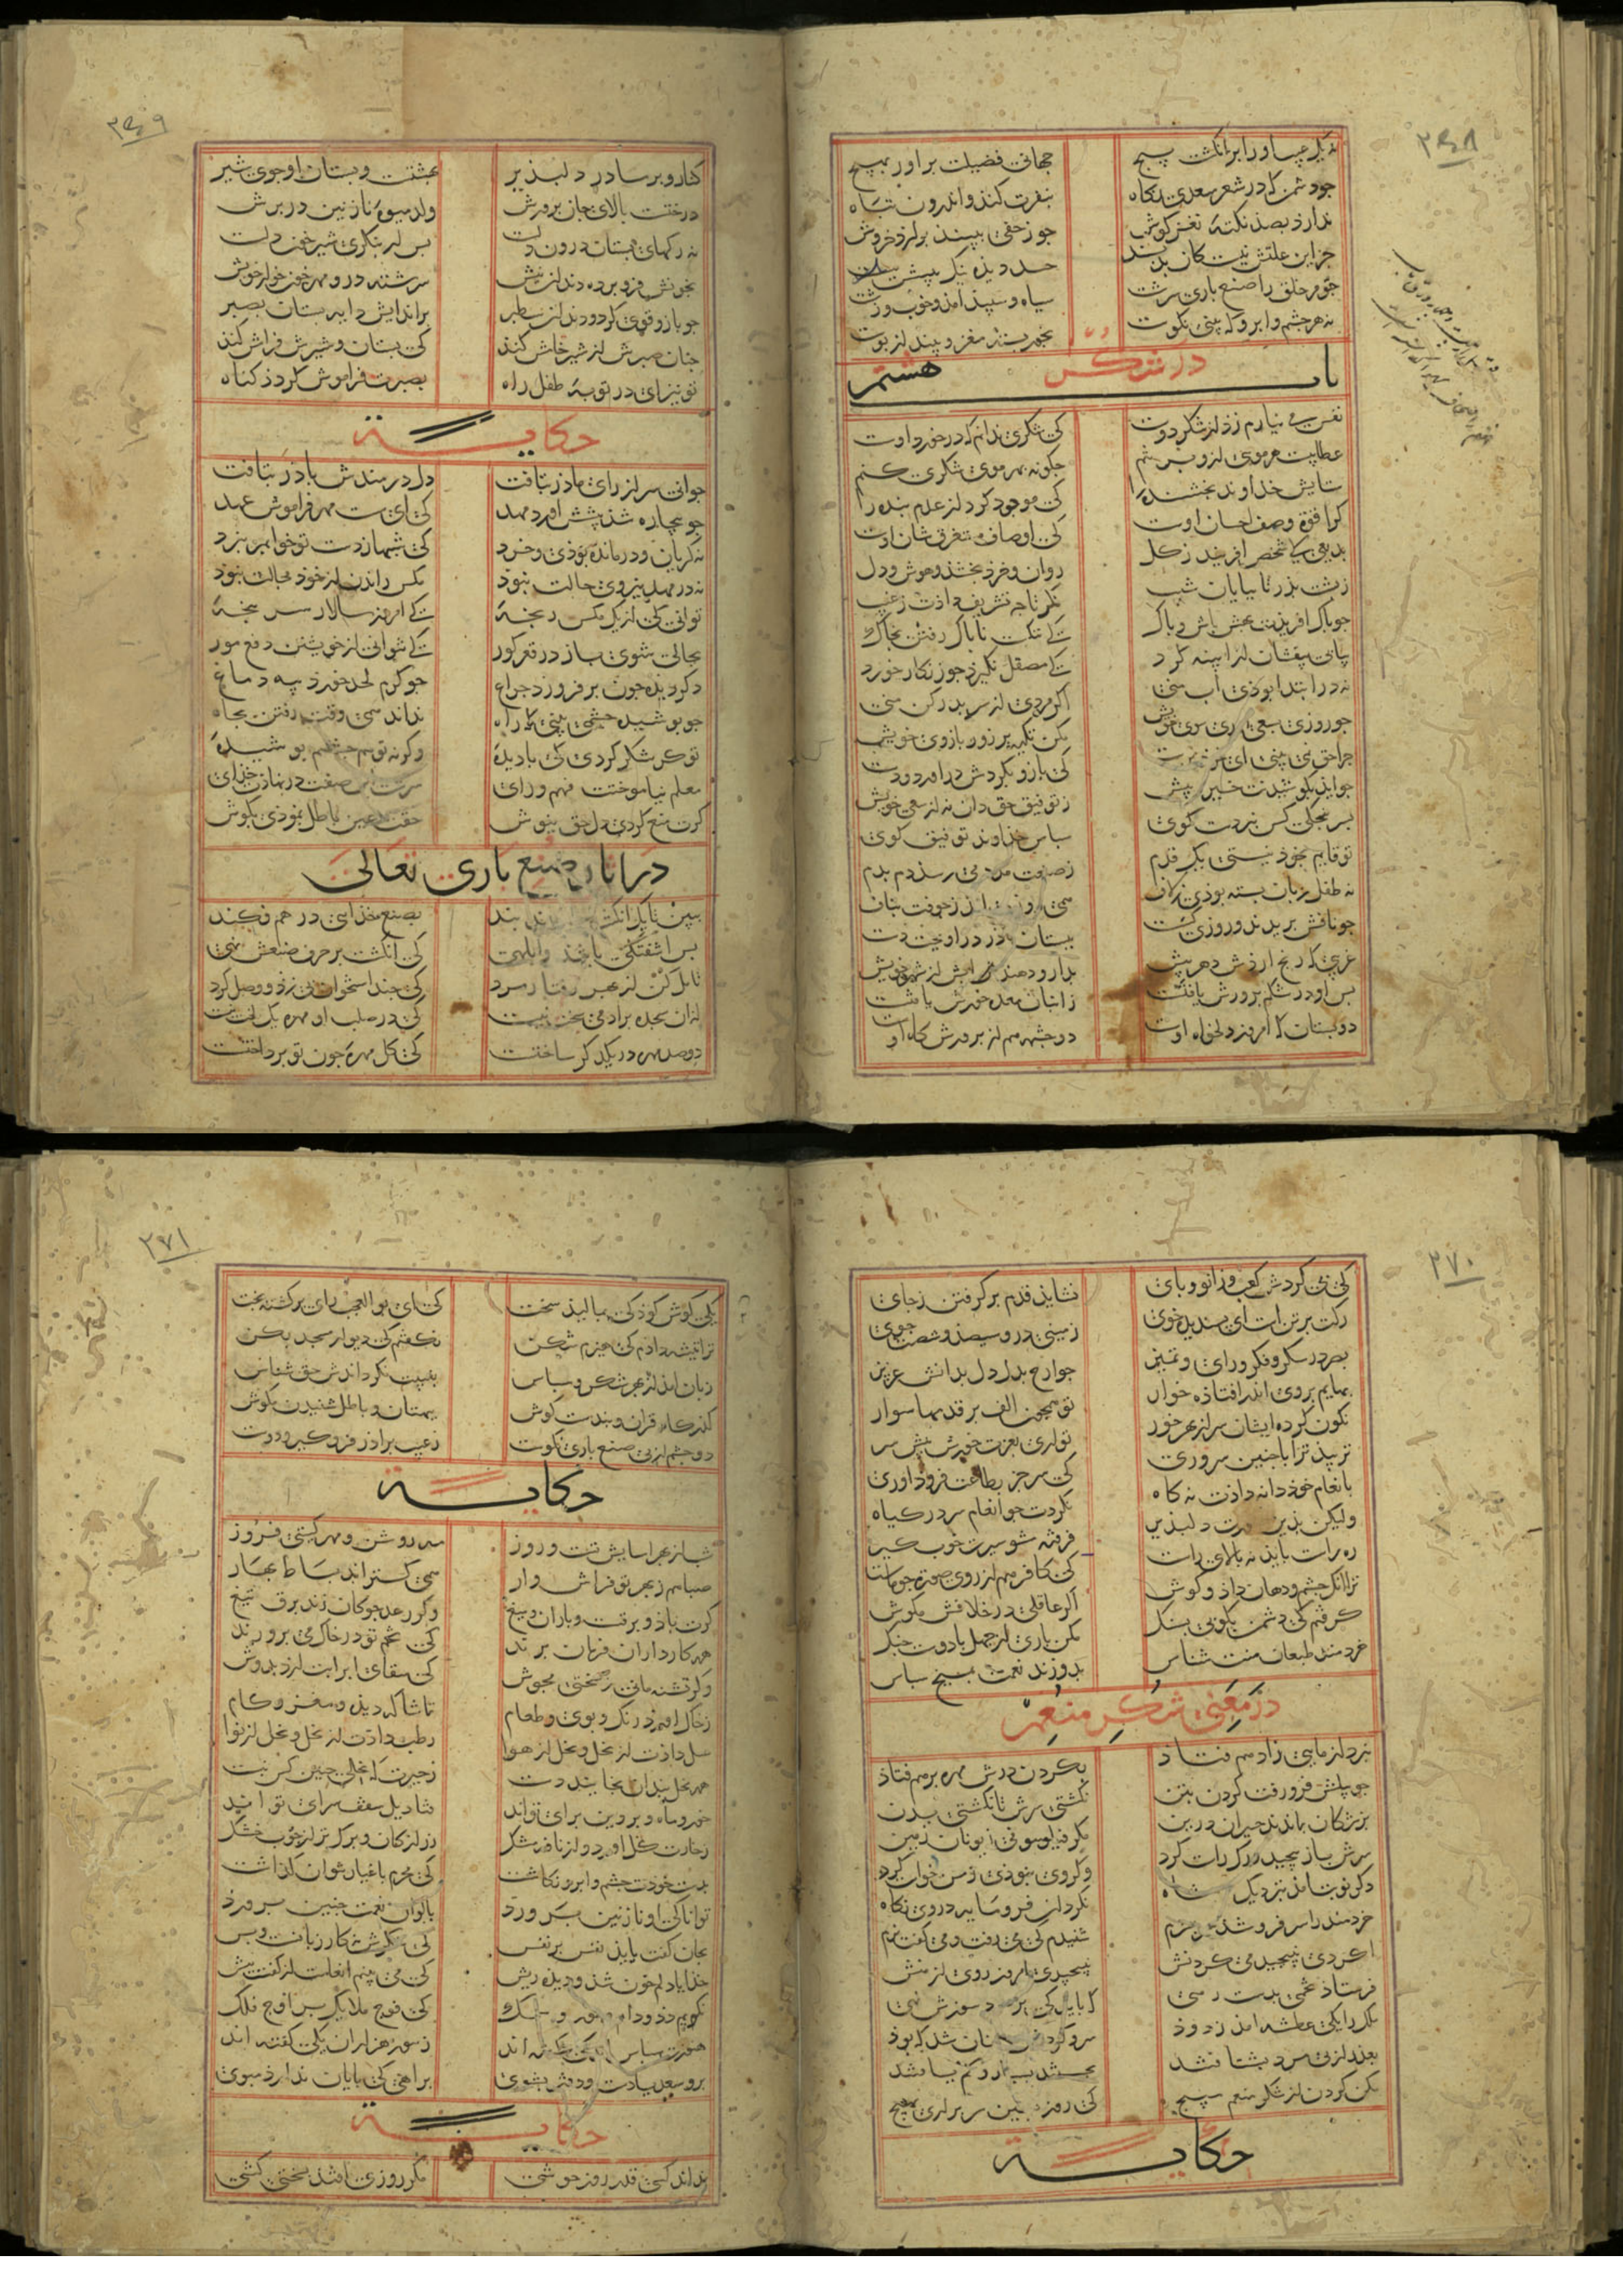 ۲۶۸
ز یک عیب او را بر انگشت پیچ جهانی فضیلت براور بهیچ
جو دشمن که در شعر سعدی نگاه بنفرت کند و اندرون تباه
ندارد بصد نکتهٔ نغز کوش جو زحفی ببیند برارد خروش
جز این علتش نیست کان بد پسند حسد دیده نیک بینش
نه مر خلق را صنع باری سرشت سیاه و سپید امد و خوب و زشت
نه هر چشم و ابرو که بینی نکوست بخور پسته مغز و بینداز پوست
باب هشتم در شکر
نفس می نیارم زد از شکر دوست کی شکری ندانم که در خورد اوست
عطاییست هر موی ازو بر تنم جکونه بهر موی شکری کنم
ستایش خداوند بخشنده را کی موجود کرد از عدم بنده را
کرا قوة وصف احسان اوست کی اوصاف مستغرق شان اوست
بدیعی کی شخص افریند ز کل روان و خرد بخشد و هوش و دل
ز پشت پدر تا بپایان شیب نکر تا جه تشریف دادت ز غیب
جو پاک افریدت بهش باش و پاک کی ننکست ناپاک رفتن بخاک
پیاپی بیفشان از اینه کرد کی مصقل نکیرد جو زنکار خورد
نه در ابتدا بوذی اب منی اکر مردی از سر بدر کن منی
جو روزی بسعی اوری سوی خویش مکن تکیه بر زور بازوی خویش
جرا حق نمی بینی ای خود پرست کی بازو بکردش دراورد و دست
جو اید بکوشیدنت خیر پیش ز توفیق حق دان نه از سعی خویش
بسر پنجکی کس نبردست کوی سپاس خداوند توفیق کوی
تو قایم بخوذ نیستی یک قدم ز غیبت مدد می رسد دم بدم
نه طفل زبان بسته بودی ز لاف همی روزی امد ز جوفت بناف
جو نافش بریدند و روزی کسست ببستان مادر دراویخت دست
غریبی که رنج اردش دهر پیش بدارو دهند ابش از شهر خویش
بس او در شکم پرورش یافتست ز انبان معده خورش یافتست
دو بستان که امروز دلخواه اوست دو چشمه هم از پرورشکاه اوست
۲۶۹
کنار و بر مادر دلپذیر بهشتست و بستان او جوی شیر
درختست بالای جان پرورش ولد میوهٔ نازنین در برش
نه رکهای بستان درون دلست بس ار بنکری شیر خون دلست
بخونش فرو برده دندان نیش سرشته درو مهر خونخوار خویش
جو بازو قوی کرد و دندان سطبر براندایش دایه بستان بصبر
جنان صبرش از شیر خامش کند کی بستان و شیرش فراموش کند
تو نیز ای در توبهٔ طفل راه بصبرت فراموش کردد کناه
حکایة
جوانی سر از رای ماذر بتافت دل دردمندش باذر بتافت
جو بیچاره شد پیشش اورد مهد کی ای سست مهر فراموش عهد
نه کریان و درمانده بوذی و خرد کی شبها ز دست تو خوابم نبرد
نه در مهد نیروی حالت نبود مکس راندن از خوذ مجالت نبود
توانی کی از یک مکس رنجهٔ کی امروز سالار سر پنجهٔ
بحالی شوی باز در قعر کور کی نتوانی از خویشتن دفع مور
دکر دیده جون برفروزد جراغ جو کرم لحد خورد پیه دماغ
جو پوشیده چشمی ببینی که راه نداند همی وقت رفتن بجاه
تو کر شکر کردی کی با دیدهٔ وکرنه تو هم چشم پوشیدهٔ
معلم نیاموختت فهم و رای سرشت این صفت در نهادت خذای
کرت منع کردی دل حق نیوش حقت عین باطل نمودی بکوش
در اثار صنع باری تعالی
ببین تا یک انکشت از چند بند بصنع خدایی درهم فکند
بس اشفتکی باشد و ابلهی کی انکشت بر حرف صنعش نهی
تامل کن از بهر رفتار مرد کی چند استخوان پی زد و وصل کرد
از ان سجده بر ادمی سخت نیست کی در صلب او مهره یک لخت نیست
دو صد مهره در یکدکر ساختست کی کل مهره جون تو پرداختست
۲۷۰
کی بی کردش کعب و زانو و پای نشاید قدم برکرفتن ز جای
رکت بر تن است ای پسندیده خوی زمینی درو سیصد و شصت جوی
بصر در سر و فکر و رای و تمیز جوارح بدل دل بدانش عزیز
بهایم بروی اندر افتاده خوار تو همچون الف بر قدمها سوار
نکون کرده ایشان سر از بهر خور تو اری بعزت خورش پیش سر
نزیبد ترا با چنین سروری کی سر جز بطاعت فرود اوری
بانعام خود دانه دادت نه کاه نکردت جو انعام سر در کیاه
ولیکن بدین صورت دلپذیر فرفته مشو سیرت خوب کیر
ره راست باید نه بالای راست کی کافر هم از روی صورت جو ماست
ترا انک چشم و دهان داد و کوش اکر عاقلی در خلافش مکوش
کرفتم کی دشمن بکوبی بسنک مکن باری از جهل با دوست جنک
خردمند طبعان منت شناس بدوزند نعمت بمیخ سپاس
در معنی شکر منعم
نبرد ازمایی ز ادهم فتاد بکردن درش مهره برهم فتاد
جو پیلش فرو رفت کردن بتن نکشتی سرش تا نکشتی بدن
بزشکان بماندند حیران درین مکر فیلسوفی ز یونان زمین
سرش باز پیچید و رک راست کرد وکر وی نبودی زمن خواست کرد
دکر نوبت امد بنزدیک شاه نکرد ان فرومایه در وی نکاه
خردمند را سر فرو شد بشرم شنیدم کی می رفت و می کفت نرم
اکر دی نپیچیدمی کردنش نپیچیدی امروز روی از منش
فرستاد تخمی بدست رهی که باید کی بر عود سوزش نهی
ملک را یکی عطسه امد ز دود سر و کردنش همچنان شد که بوذ
بعذر از پی مرد بشتافتند بجستند بسیار و کم یافتند
مکن کردن از شکر منعم مپیچ کی روز پسین سر براری بهیچ
حکایة
۲۷۱
یکی کوش کودکی بمالید سخت کی ای بوالعجب رای برکشته بخت
ترا تیشه دادم کی هیزم شکن نکفتم کی دیوار مسجد بکن
زبان امد از بهر شکر و سپاس بغیبت نکرداندش حق شناس
کذرکاه قران و پندست کوش ببهتان و باطل شنیدن مکوش
دو چشم از پی صنع باری نکوست ز عیب براذر فرو کیر و دوست
حکایة
شب از بهر اسایش تست و روز مه روشن و مهر کیتی فروز
صبا هم ز بهر تو فراش وار همی کستراند بساط بهار
کرت باذ و برفست و باران و میغ وکر رعد جوکان زند برق تیغ
همه کارداران فرمان برند کی تخم تو در خاک می پرورند
وکر تشنه مانی ز سختی مجوش کی سقای ابر ابت ارد بدوش
ز خاک اورد رنک و بوی و طعام تماشاکه دیده و مغز و کام
عسل دادت از نحل و نخل از هوا رطب دادت از نخل و نخل از نوا
همه نخل بندان بخایند دست ز حیرت که نخلی چنین کس نبست
خور و ماه و پروین برای تواند قنادیل سقف سرای تو اند
ز خارت کل اورد و از نافه مشک زر از کان و برک تر از چوب خشک
بدست خودت چشم و ابرو نکاشت کی محرم باغیار نتوان کذاشت
توانا کی او نازنین پرورد بالوان نعمت چنین پرورد
بجان کفت باید نفس بر نفس کی شکرش نه کار زبانست و بس
خدایا دلم خون شد و دیده ریش کی می بینم انعامت از کفت بیش
نکویم دد و دام و مور و سمک کی فوج ملایک بر اوج فلک
هنوزت سپاس اندکی کفته اند ز بیور هزاران یکی کفته اند
برو سعدیا دست و دفتر بشوی براهی کی پایان ندارد مپوی
حکایة
نداند کسی قدر روز خوشی مکر روزی افتد بسختی کشی